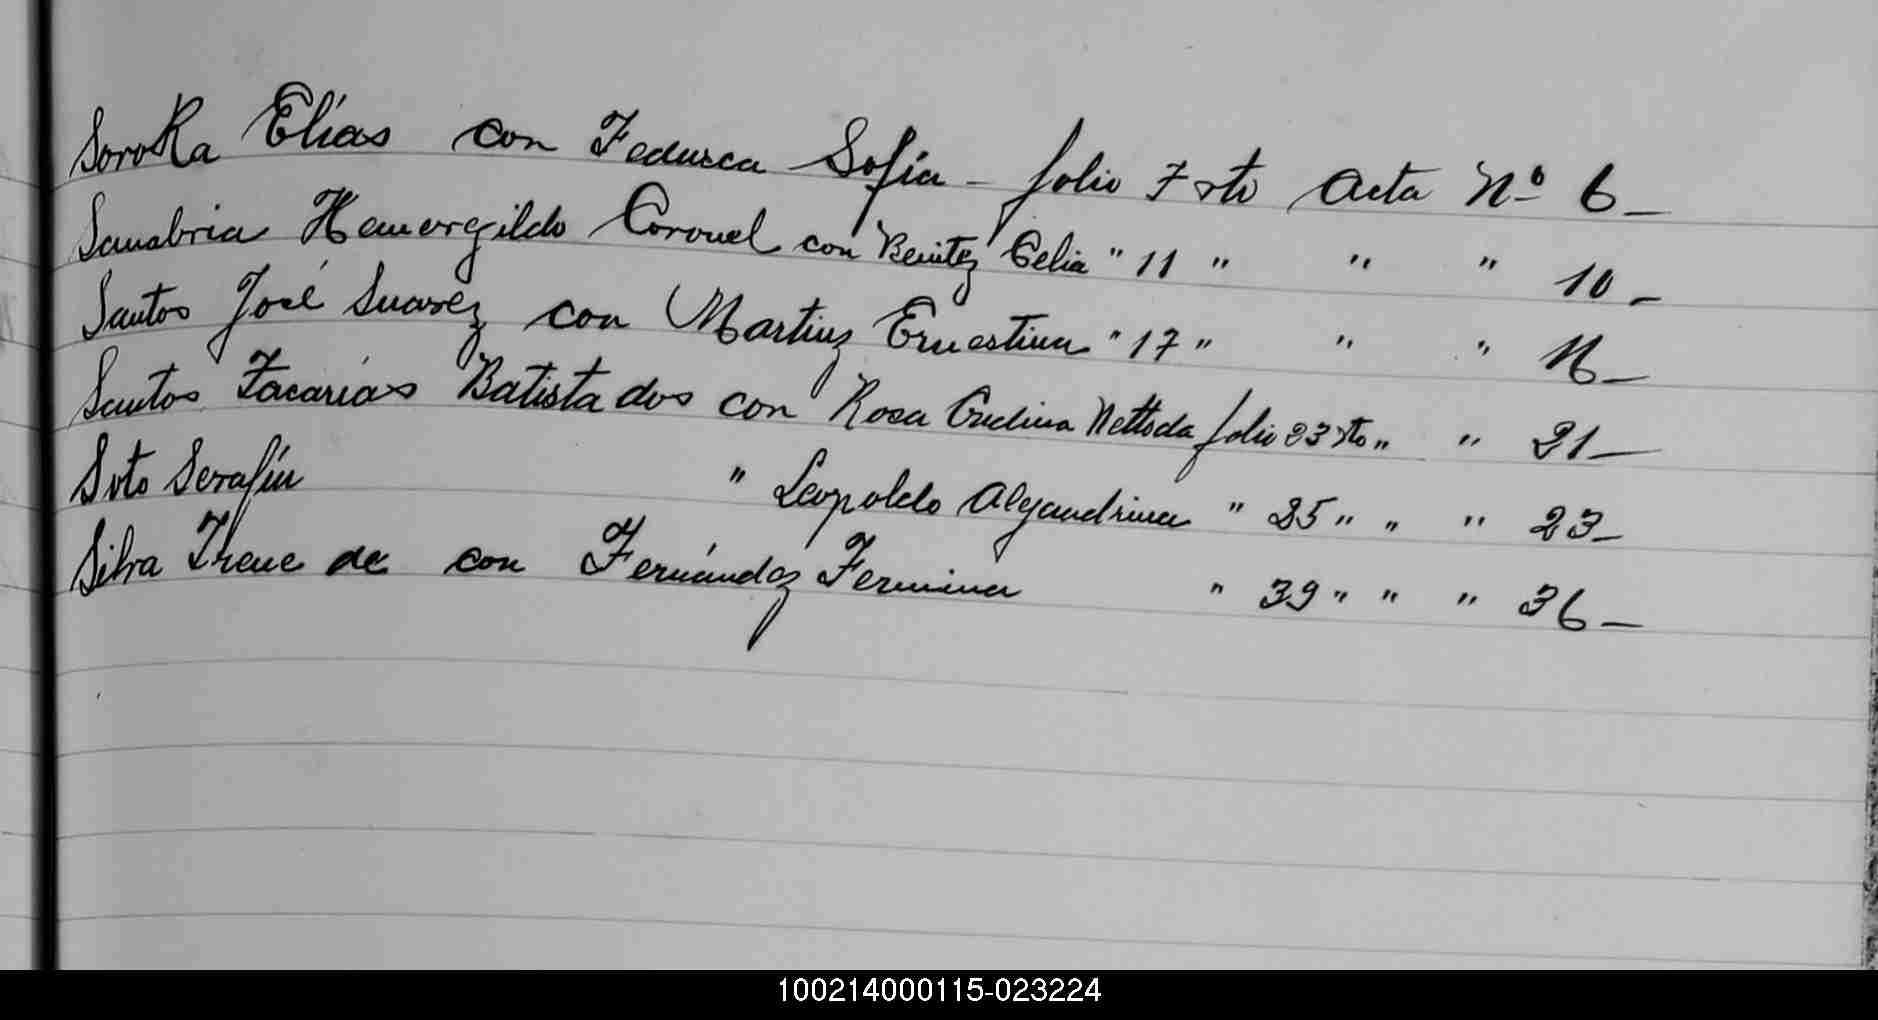 SoroKa Elías con Fedurca Sofía - folio 7 vto Acta Nº 6_
Sanabria Hemergildo Coronel con Benitez Celia " 11 " " " 10_
Santos José Suarez con Martinz Ernestina " 17 " " " 16_
Santos Zacarías Batista dos con Rosa Netto da folio 23 vto " " 21_
Soto Serafín " Leopoldo Alejandrina " 25 " " " 23_
Silva Irene de con Fernández Fermina " 39 " " " 36_
100214000115-023224